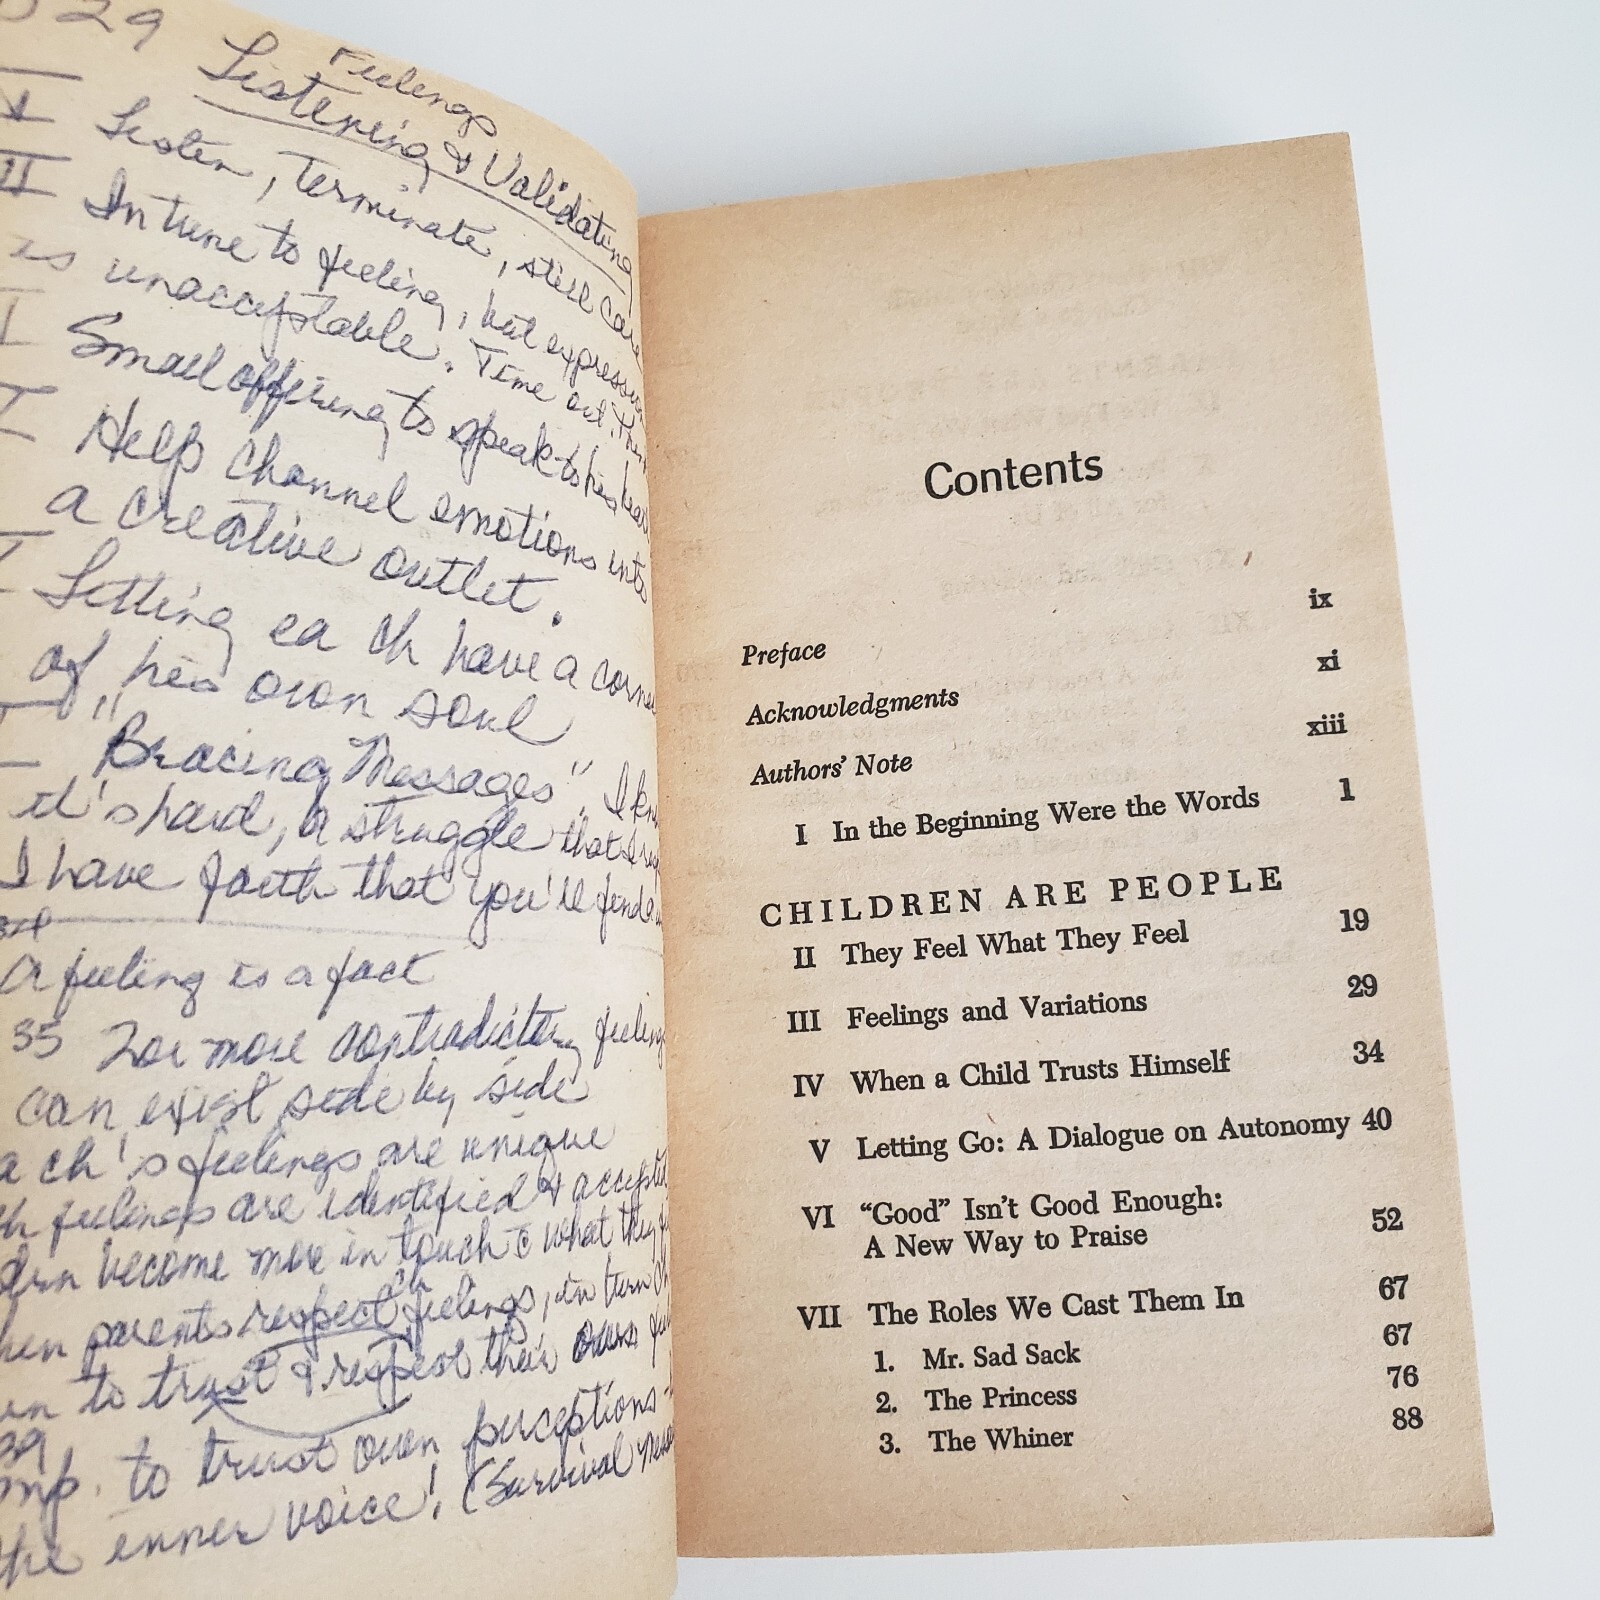 29
Feelings
Listening & Validating
I Listen, Terminate, still care
II In tune to feeling, but expression
is unacceptable. Time out. Then
Small offering to speak to his
Help channel emotions into
a creative outlet.
Letting ea ch have a corner
of his own soul
"Bracing Messages". I
it's hard, a struggle that
I have faith that you'll find
34
A feeling is a fact
35 2 or more contradictory feelings
can exist side by side
a ch's feelings are unique
feelings are identified & accepted
become more in touch c̄ what they
ch
parents respect feelings, in turn
to trust & respect their own
39
imp. to trust own perceptions
the inner voice! (Survival
Contents
Preface ix
Acknowledgments xi
Authors' Note xiii
I In the Beginning Were the Words 1
CHILDREN ARE PEOPLE
II They Feel What They Feel 19
III Feelings and Variations 29
IV When a Child Trusts Himself 34
V Letting Go: A Dialogue on Autonomy 40
VI "Good" Isn't Good Enough:
A New Way to Praise 52
VII The Roles We Cast Them In 67
1. Mr. Sad Sack 67
2. The Princess 76
3. The Whiner 88